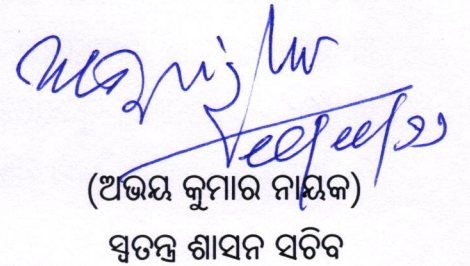 (ଅଭୟ କୁମାର ନାୟକ)
ସ୍ୱତନ୍ତ୍ର ଶାସନ ସଚିବ